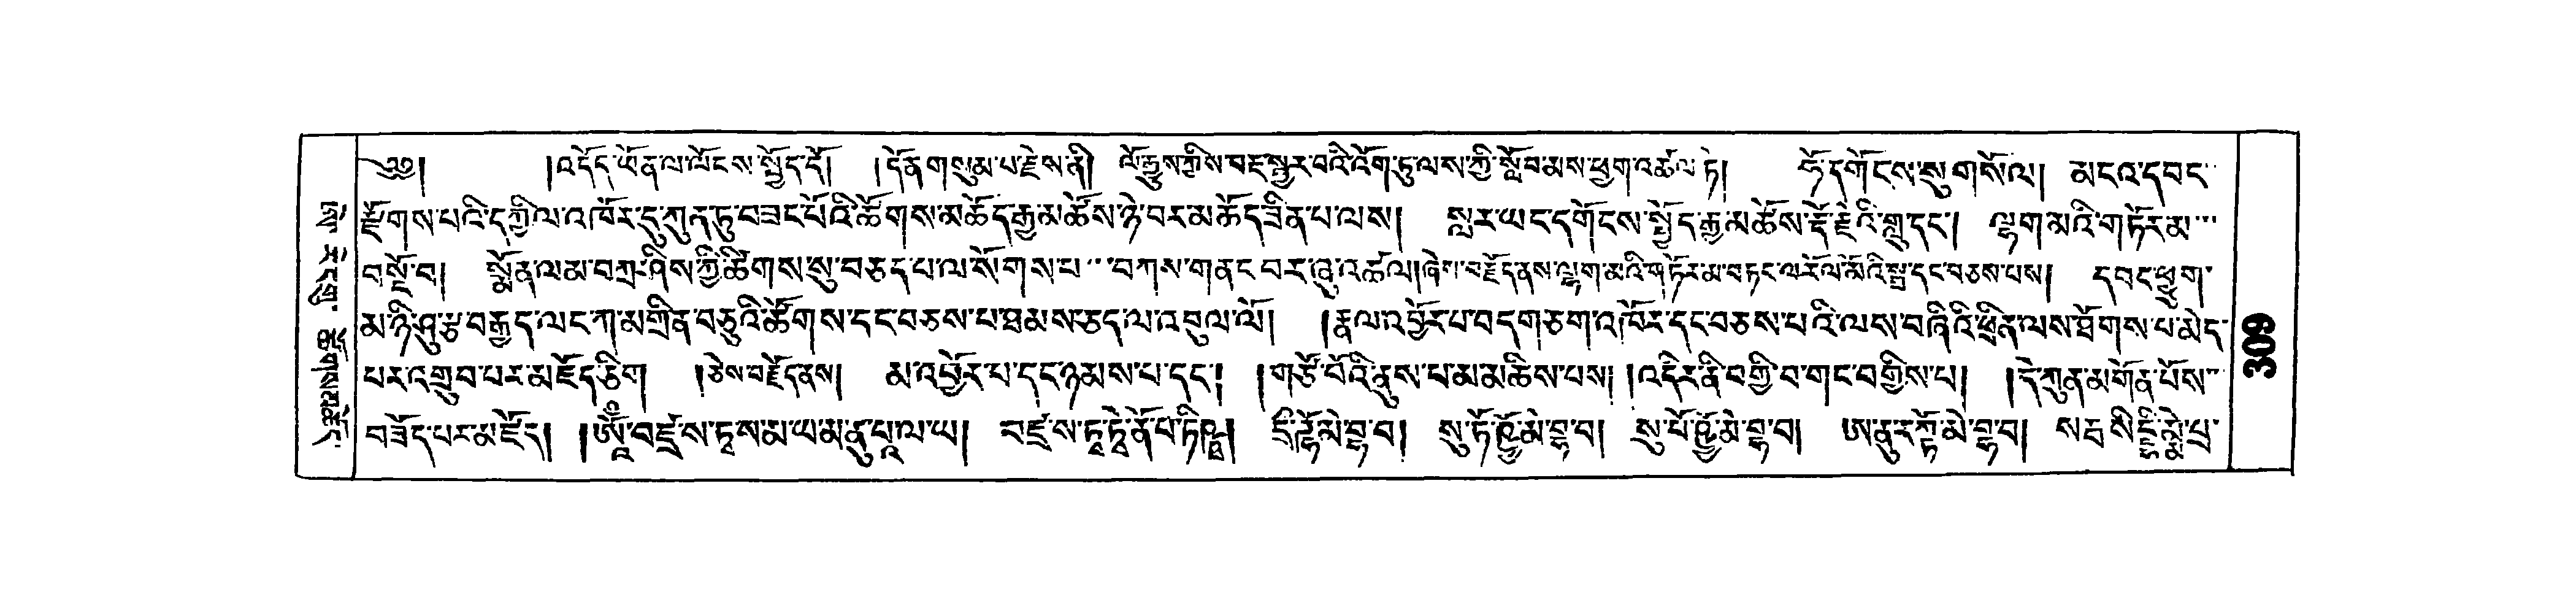 ༄༅། །འདོད་ཡོན་ལ་ལོངས་སྤྱོད་དོ། །དོན་གསུམ་པ་རྗེས་ནི། ལོ་རྒྱུས་ཀྱིས་བང་སྒྱུར་བའི་འོག་ཏུ་ལས་ཀྱི་སློབ་མས་ཕྱག་འཚལ་ཏེ། ཧོ་དགོངས་སུ་གསོལ། མངའ་དབང་
རྫོགས་པའི་དཀྱིལ་འཁོར་དུ་ཀུན་ཏུ་བཟང་པོའི་ཚོགས་མཆོད་རྒྱ་མཚོས་ཉེ་བར་མཆོད་ཟིན་པ་ལས། སླར་ཡང་དགོངས་སྤྱོད་རྒྱ་མཚོས་རྡོ་རྗེའི་གླུ་དང་། ལྷག་མའི་གཏོར་མ་
བསྔོ་བ། སྨོན་ལམ་བཀྲ་ཤིས་ཀྱི་ཚིགས་སུ་བཅད་པ་ལ་སོགས་པ་བཀས་གནང་བར་ཞུ་འཚལ། །ཞེས་བརྗོད་ནས་ལྷག་མའི་གཏོར་མ་བཏང་ལ་རོལ་མོའི་སྒྲ་དང་བཅས་པས། དབང་ཕྱུག་
མ་ཉི་ཤུ་རྩ་བརྒྱད་ལང་ཀ་མགྲིན་བཅུའི་ཚོགས་དང་བཅས་པ་ཐམས་ཅད་ལ་འབུལ་ལོ། །རྣལ་འབྱོར་པ་བདག་ཅག་འཁོར་དང་བཅས་པའི་ལས་བཞིའི་ཕྲིན་ལས་ཐོགས་པ་མེད་
པར་འགྲུབ་པར་མཛོད་ཅིག །ཅེས་བརྗོད་ནས། མ་འབྱོར་པ་དང་ཉམས་པ་དང་། །གཙོ་བོའི་ནུས་པ་མ་མཆིས་པས། །འདིར་ནི་བགྱི་བ་གང་བགྱིས་པ། །དེ་ཀུན་མགོན་པོས་
བཟོད་པར་མཛོད། །ཨོཾ་བཛྲ་ས་ཏྭ་ས་མ་ཡ་མ་ནུ་པཱ་ལ་ཡ། བཛྲ་ས་ཏྭ་ཏྭེ་ནོ་པ་ཏིཥྛ། དྲྀ་ཌྷོ་མེ་བྷ་བ། སུ་ཏོ་ཥྱོ་མེ་བྷ་བ། སུ་པོ་ཥྱོ་མེ་བྷ་བ། ཨ་ནུ་རཀྟོ་མེ་བྷ་བ། སརྦ་སིདྡྷི་མྨེ་པྲ་
༡༠༣